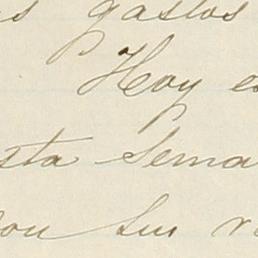 s gastos
Hoy e
sta Sema
ou su r